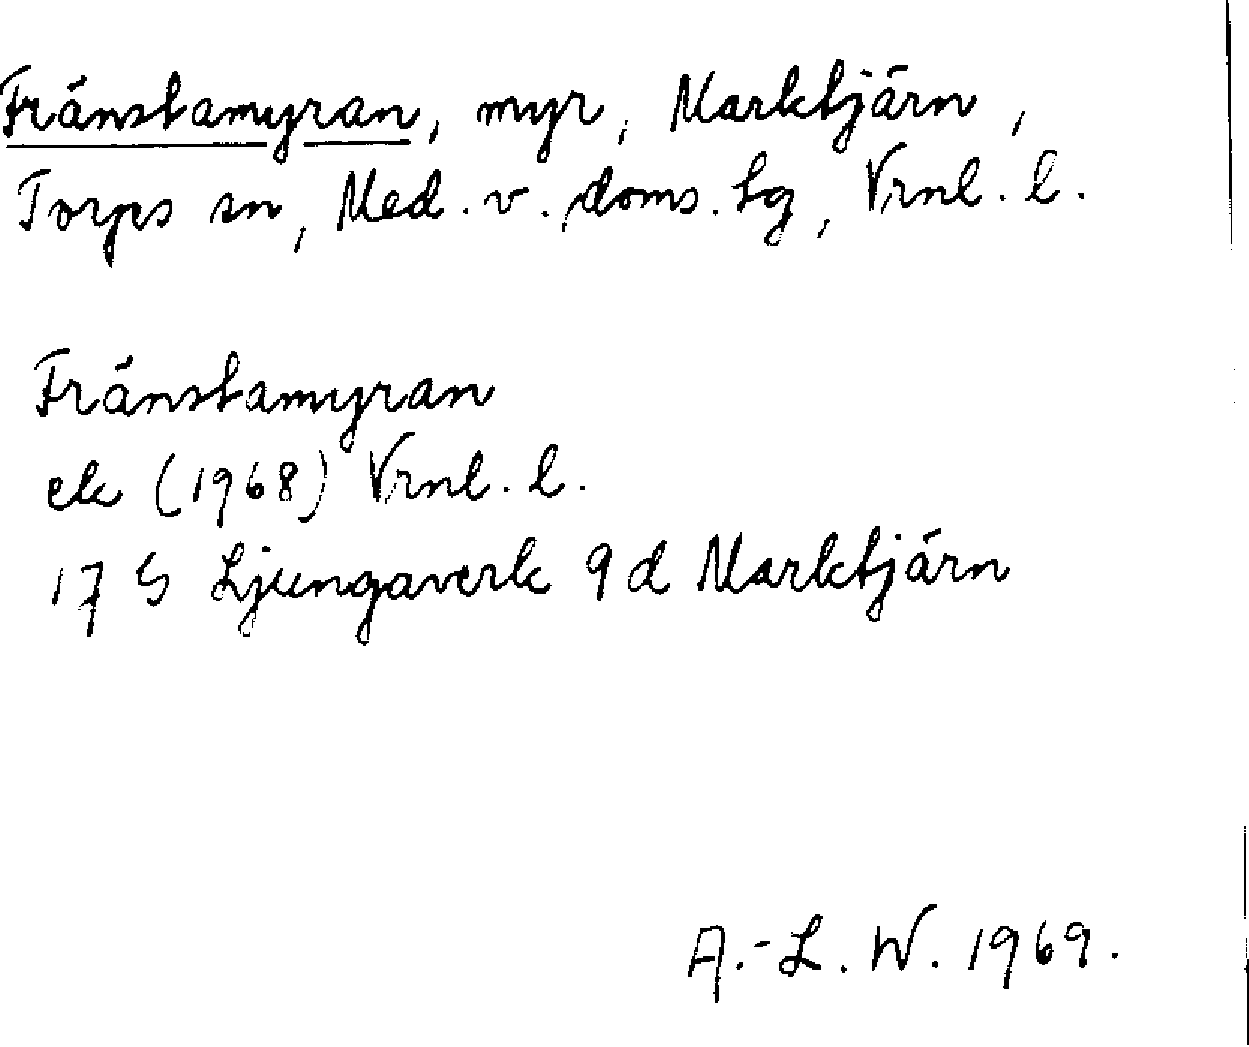 Fränstamyran, myr, Marktjärn,
Torps sn, Med. v. doms. tg, Vrnl. l.
Fränstamyran
ek (1968) Vrnl. l.
17 G Ljungaverk 9 d Marktjärn
A.-L. W. 1969.